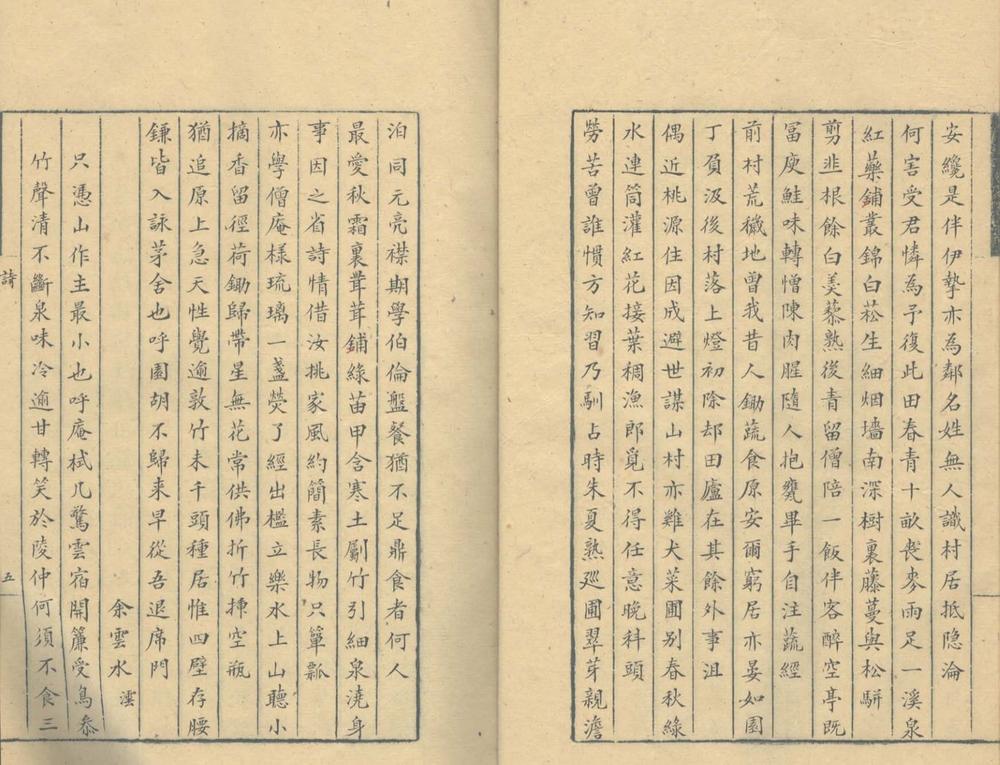 安纔是伴伊摯亦為鄰名姓無人識村居抵隐淪
何害受君憐為予復此田春青十畝喪麥雨足一溪泉
紅藥鋪叢錦白菘生細烟墻南深樹裏藤蔓與松駢
剪韭根餘白羮藜熟後青留僧陪一飯伴客醉空亭既
冨庾鮭味轉憎陳肉腥隨人抱甕畢手自注蔬經
前村荒穢地曾我昔人鋤蔬食原安爾窮居亦晏如園
丁負汲後村落上燈初除却田廬在其餘外事沮
偶近桃源住因成避世謀山村亦雞犬菜圃别春秋綠
水連筒灌紅花接葉稠漁郎覓不得任意晚科頭
勞苦曾誰慣方知習乃馴占時朱夏熟廵圃翠芽親澹
泊同元亮襟期學伯倫盤餐猶不足鼎食者何人
最愛秋霜裏茸茸鋪綠苗甲含寒土劚竹引細泉澆身
事因之省詩情借汝挑家風約簡素長物只簞瓢
亦學僧庵様琉璃一盞熒了經出檻立樂水上山聽小
摘香留徑荷鋤歸帶星無花常供佛折竹揷空瓶
猶追原上急天性覺逾敦竹未千頭種居惟四壁存腰
鎌皆入詠茅舍也呼園胡不歸来早從吾退席門
余雲水 澐
只憑山作主最小也呼庵栻几驚雲宿開簾受鳥叅
竹聲清不斷泉味冷逾甘轉笑於陵仲何須不食三
詩
五